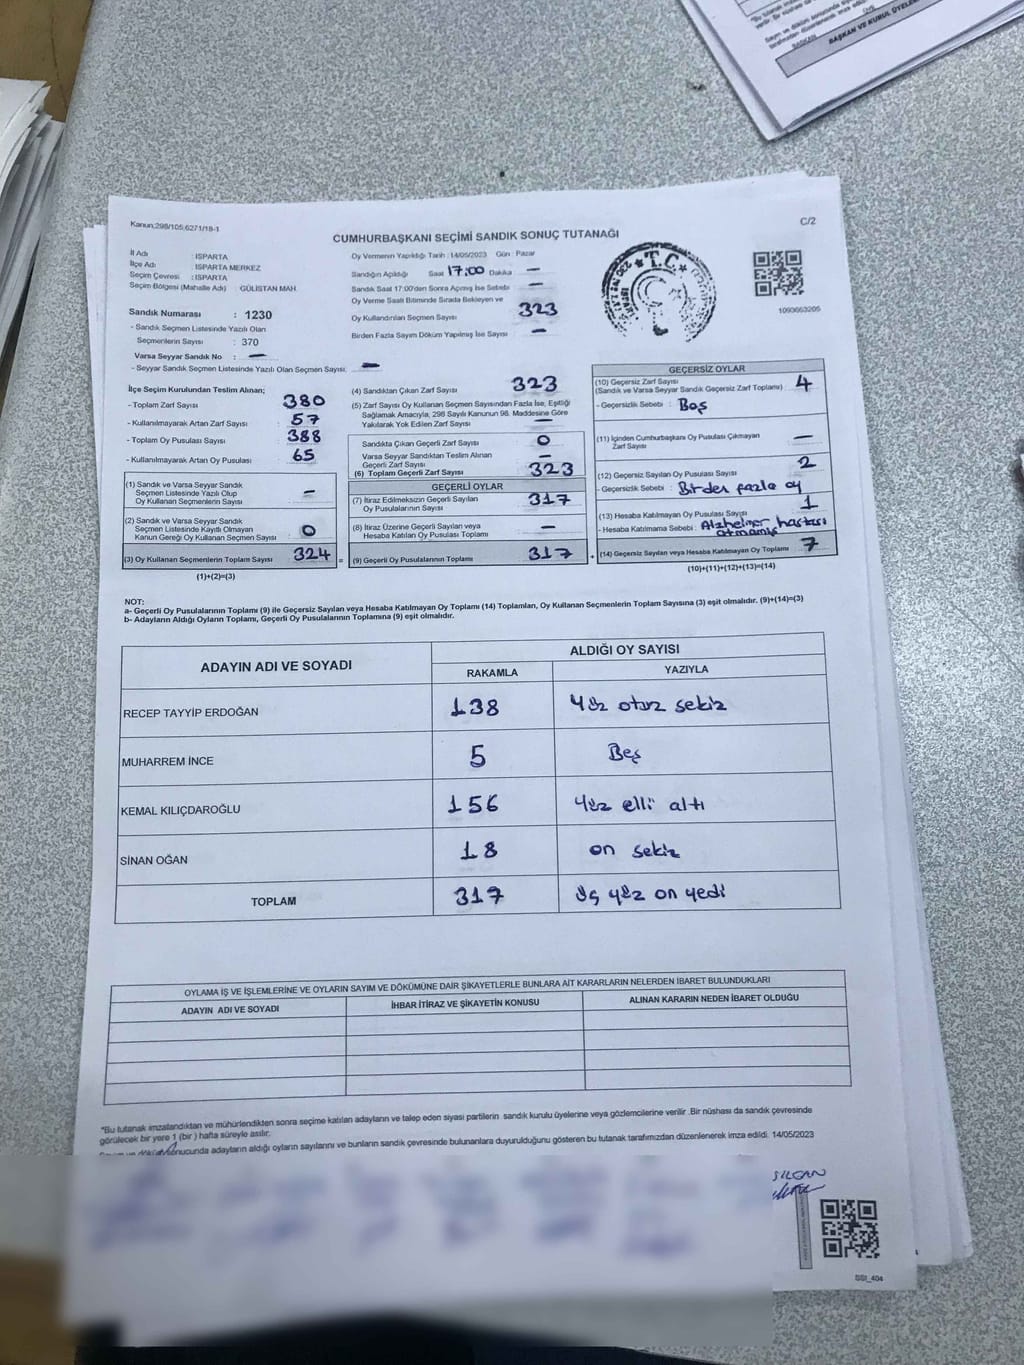 BAŞKAN VE KURUL ÜYELERİ
Kanun;298/105,6271/18-1
C/2
CUMHURBAŞKANI SEÇİMİ SANDIK SONUÇ TUTANAĞI
İl Adı : ISPARTA
İlçe Adı : ISPARTA MERKEZ
Seçim Çevresi : ISPARTA
Seçim Bölgesi (Mahalle Adı) : GÜLİSTAN MAH.
Sandık Numarası : 1230
- Sandık Seçmen Listesinde Yazılı Olan
Seçmenlerin Sayısı : 370
Varsa Seyyar Sandık No : —
- Seyyar Sandık Seçmen Listesinde Yazılı Olan Seçmen Sayısı: —
Oy Vermenin Yapıldığı Tarih : 14/05/2023 Gün : Pazar
Sandığın Açıldığı Saat 17:00 Dakika —
Sandık Saat 17:00'den Sonra Açılmış İse Sebebi —
Oy Verme Saati Bitiminde Sırada Bekleyen ve
Oy Kullandırılan Seçmen Sayısı 323
Birden Fazla Sayım Döküm Yapılmış İse Sayısı —
T.C.
1090663205
İlçe Seçim Kurulundan Teslim Alınan;
- Toplam Zarf Sayısı 380
- Kullanılmayarak Artan Zarf Sayısı 57
- Toplam Oy Pusulası Sayısı 388
- Kullanılmayarak Artan Oy Pusulası 65
(1) Sandık ve Varsa Seyyar Sandık
Seçmen Listesinde Yazılı Olup
Oy Kullanan Seçmenlerin Sayısı —
(2) Sandık ve Varsa Seyyar Sandık
Seçmen Listesinde Kayıtlı Olmayan
Kanun Gereği Oy Kullanan Seçmen Sayısı 0
(3) Oy Kullanan Seçmenlerin Toplam Sayısı 324 =
(1)+(2)=(3)
(4) Sandıktan Çıkan Zarf Sayısı 323
(5) Zarf Sayısı Oy Kullanan Seçmen Sayısından Fazla İse, Eşitliği
Sağlamak Amacıyla, 298 Sayılı Kanunun 98. Maddesine Göre
Yakılarak Yok Edilen Zarf Sayısı —
Sandıkta Çıkan Geçerli Zarf Sayısı 0
Varsa Seyyar Sandıktan Teslim Alınan
Geçerli Zarf Sayısı —
(6) Toplam Geçerli Zarf Sayısı 323
GEÇERLİ OYLAR
(7) İtiraz Edilmeksizin Geçerli Sayılan
Oy Pusulalarının Toplamı 317
(8) İtiraz Üzerine Geçerli Sayılan veya
Hesaba Katılan Oy Pusulası Toplamı —
(9) Geçerli Oy Pusulalarının Toplamı 317 +
GEÇERSİZ OYLAR
(10) Geçersiz Zarf Sayısı
(Sandık ve Varsa Seyyar Sandık Geçersiz Zarf Toplamı) 4
- Geçersizlik Sebebi : Boş
(11) İçinden Cumhurbaşkanı Oy Pusulası Çıkmayan
Zarf Sayısı —
(12) Geçersiz Sayılan Oy Pusulası Sayısı 2
- Geçersizlik Sebebi : Birden fazla oy
(13) Hesaba Katılmayan Oy Pusulası Sayısı 1
- Hesaba Katılmama Sebebi : Alzheimer hastası
atmamış
(14) Geçersiz Sayılan veya Hesaba Katılmayan Oy Toplamı 7
(10)+(11)+(12)+(13)=(14)
NOT:
a- Geçerli Oy Pusulalarının Toplamı (9) ile Geçersiz Sayılan veya Hesaba Katılmayan Oy Toplamı (14) Toplamları, Oy Kullanan Seçmenlerin Toplam Sayısına (3) eşit olmalıdır. (9)+(14)=(3)
b- Adayların Aldığı Oyların Toplamı, Geçerli Oy Pusulalarının Toplamına (9) eşit olmalıdır.
ADAYIN ADI VE SOYADI
ALDIĞI OY SAYISI
RAKAMLA YAZIYLA
RECEP TAYYİP ERDOĞAN 138 Yüz otuz sekiz
MUHARREM İNCE 5 Beş
KEMAL KILIÇDAROĞLU 156 Yüz elli altı
SİNAN OĞAN 18 on sekiz
TOPLAM 317 üç yüz on yedi
OYLAMA İŞ VE İŞLEMLERİNE VE OYLARIN SAYIM VE DÖKÜMÜNE DAİR ŞİKAYETLERLE BUNLARA AİT KARARLARIN NELERDEN İBARET BULUNDUKLARI
ADAYIN ADI VE SOYADI İHBAR İTİRAZ VE ŞİKAYETİN KONUSU ALINAN KARARIN NEDEN İBARET OLDUĞU
"Bu tutanak imzalandıktan ve mühürlendikten sonra seçime katılan adayların ve talep eden siyasi partilerin sandık kurulu üyelerine veya gözlemcilerine verilir .Bir nüshası da sandık çevresinde
görülecek bir yere 1 (bir ) hafta süreyle asılır.
Sayım ve döküm sonucunda adayların aldığı oyların sayılarını ve bunların sandık çevresinde bulunanlara duyurulduğunu gösteren bu tutanak tarafımızdan düzenlenerek imza edildi. 14/05/2023
SSI_404